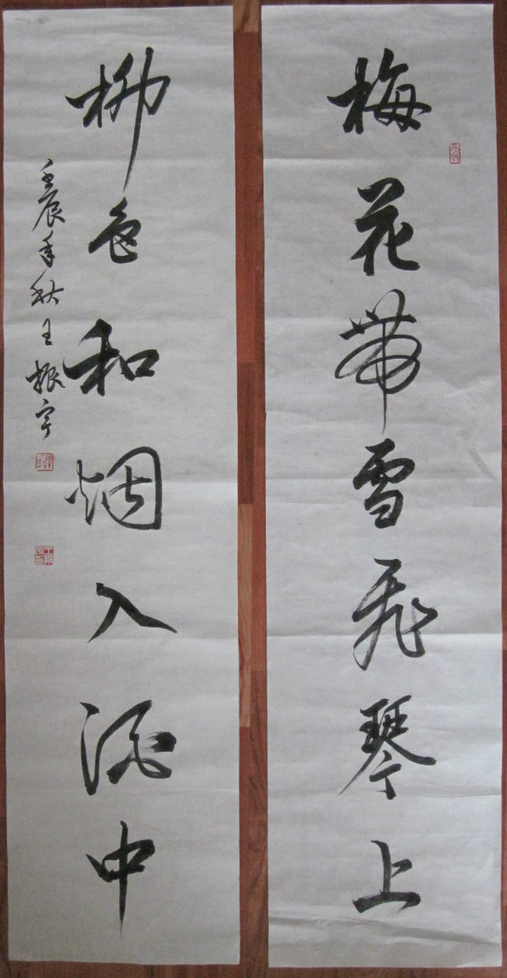 梅花带雪飛琴上
柳色和烟入酒中
壬辰年秋王振宇